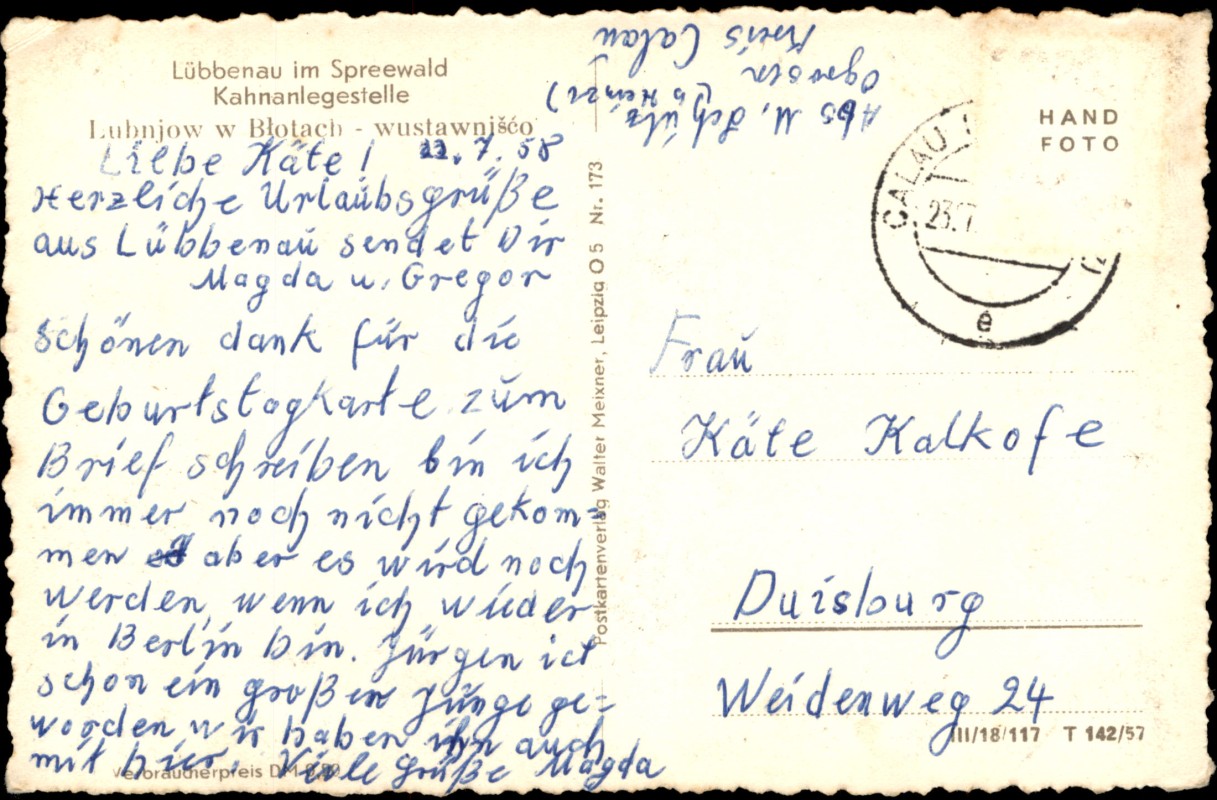 Lübbenau im Spreewald
Kahnanlegestelle
Lubnjow w Błotach - wustawnišćo
Liebe Käte! 22.7.58
Herzliche Urlaubsgrüße
aus Lübbenau sendet Dir
Magda u. Gregor
Schönen dank für die
Geburtstagkarte zum
Brief schreiben bin ich
immer noch nicht gekom=
men aber es wird noch
werden, wenn ich wieder
in Berlin bin. Jürgen ict
schon ein großer Junge ge=
worden, wir haben ihn auch
mit hier. Viele Grüße Magda
Verbraucherpreis DM
Postkartenverlag Walter Meixner, Leipzig O 5 Nr. 173
Abs M. Schütz
Ogrosen (b Heinze)
Kreis Calau
HAND
FOTO
CALAU
23.7
e
Frau
Käte Kalkofe
Duisburg
Weidenweg 24
III/18/117 T 142/57